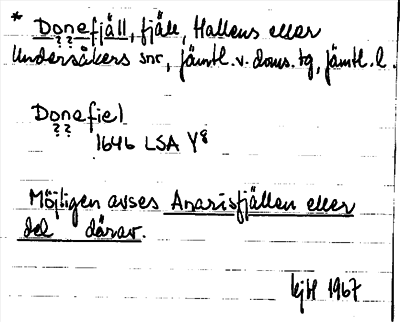 * Donefjäll, fjäll, Hallens eller
? ?
Undersåkers snr, jämtl. v. doms. tg, jämtl. l.
Donefiel
? ?
1646 LSA Y8
Möjligen avses Anarisfjällen eller
del därav.